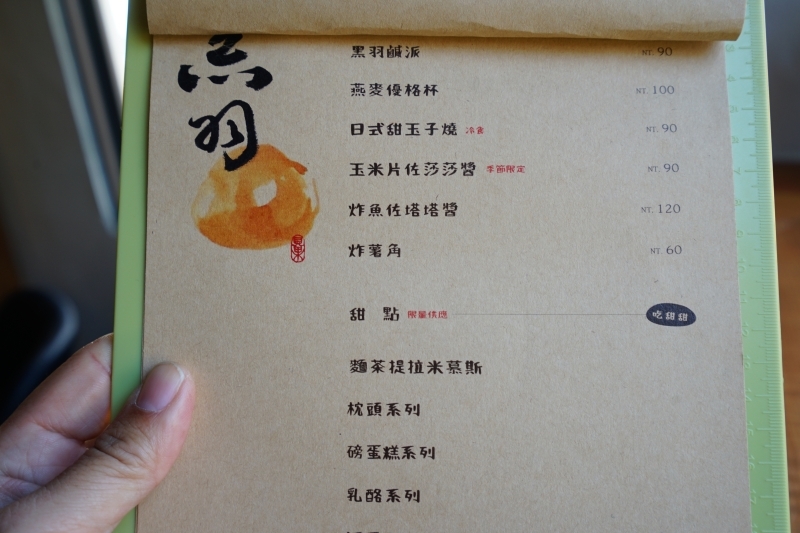 黑羽
黑羽鹹派 NT. 90
燕麥優格杯 NT. 100
日式甜玉子燒 冷食 NT. 90
玉米片佐莎莎醬 季節限定 NT. 90
炸魚佐塔塔醬 NT. 120
炸薯角 NT. 60
甜 點 限量供應 吃甜甜
麵茶提拉米慕斯
枕頭系列
磅蛋糕系列
乳酪系列